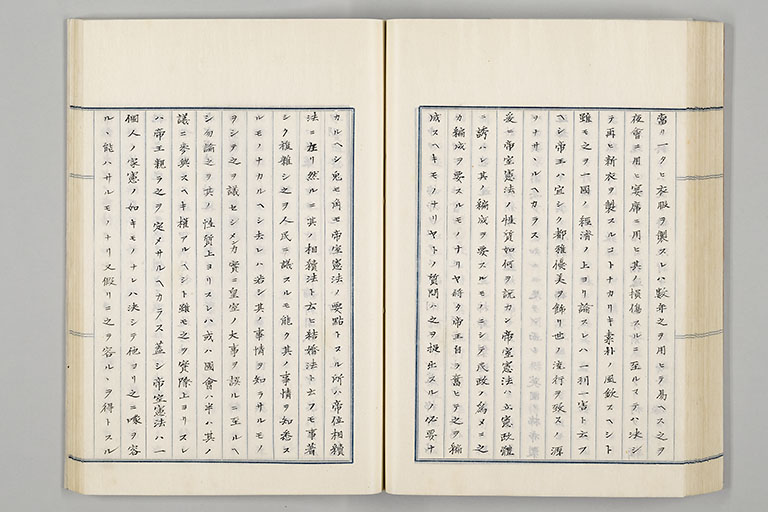 當リ一タヒ衣服ヲ製スレハ數年之ヲ用ヒテ易ヘス之ヲ
夜會ニ用ヒ宴席ニ用ヒ其ノ損傷スルニ至ルマテハ決シ
テ再ヒ新衣ヲ製スルコトナカリキ素朴ノ風欽スヘシト
雖モ之ヲ一國ノ經濟ノ上ヨリ論スレハ一利一害ト云フ
ヘシ帝王ハ宜シク都雅優美ヲ飾リ世ノ流行ヲ致スノ源
ヲナサヽルヘカラス
爰ニ帝室憲法ノ性質如何ヲ説カン帝室憲法ハ立憲政體
ニ誘ハレ其ノ編成ヲ要スルモノニシテ民政ノ為メニ之
カ編成ヲ要スルモノナリヤ將タ帝王自ラ奮ヒテ之ヲ編
成スヘキモノナリヤトノ質問ハ之ヲ提出スルノ必要ナ
カルヘシ兎モ角モ帝室憲法ノ要點トスル所ハ帝位相續
法ニ在リ然ルニ其ノ相續法ト云ヒ結婚法ト云フモ事著
シク複雜シ之ヲ人民ニ議スルモ能ク其ノ事情ヲ知悉ス
ルモノナカルヘシ去レハ若シ其ノ事情ヲ知ラサルモノ
ヲシテ之ヲ議セシメンカ實ニ皇室ノ大事ヲ誤ルニ至ルヘ
シ勿論之ヲ其ノ性質上ヨリスレハ或ハ國會ハ半ハ其ノ
議ニ參與スヘキ權アルヘシト雖モ之ヲ實際上ヨリスレ
ハ帝王親ラ之ヲ定メサルヘカラス蓋シ帝室憲法ハ一
個人ノ家憲ノ如キモノナレハ決シテ他ヨリ之ニ喙ヲ容
ルヽ能ハサルモノナリ又假リニ之ヲ容ルヽヲ得トスル